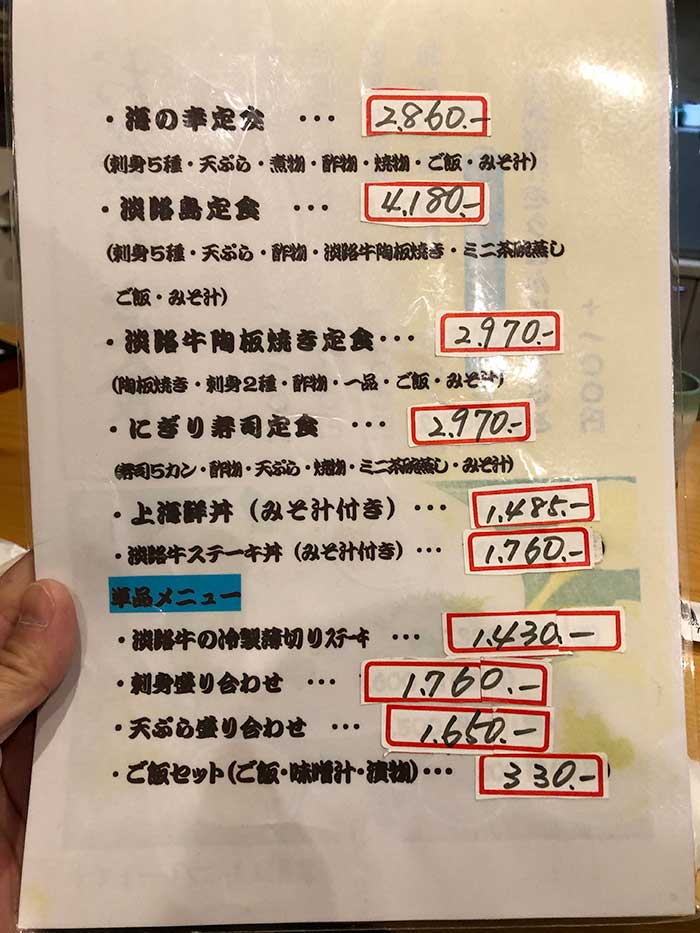 ・海の幸定食 ・・・ 2.860.-
(刺身5種・天ぷら・煮物・酢物・焼物・ご飯・みそ汁)
・淡路島定食 ・・・ 4.180.-
(刺身5種・天ぷら・酢物・淡路牛陶板焼き・ミニ茶碗蒸し
ご飯・みそ汁)
・淡路牛陶板焼き定食・・・ 2.970.-
(陶板焼き・刺身2種・酢物・一品・ご飯・みそ汁)
・にぎり寿司定食 ・・・ 2.970.-
(寿司5カン・酢物・天ぷら・焼物・ミニ茶碗蒸し・みそ汁)
・上海鮮丼(みそ汁付き)・・・ 1.485.-
・淡路牛ステーキ丼(みそ汁付き)・・・ 1.760.-
単品メニュー
・淡路牛の冷製薄切りステーキ ・・・ 1.430.-
・刺身盛り合わせ ・・・ 1.760.-
・天ぷら盛り合わせ ・・・ 1.650.-
・ご飯セット(ご飯・味噌汁・漬物)・・・ 330.-